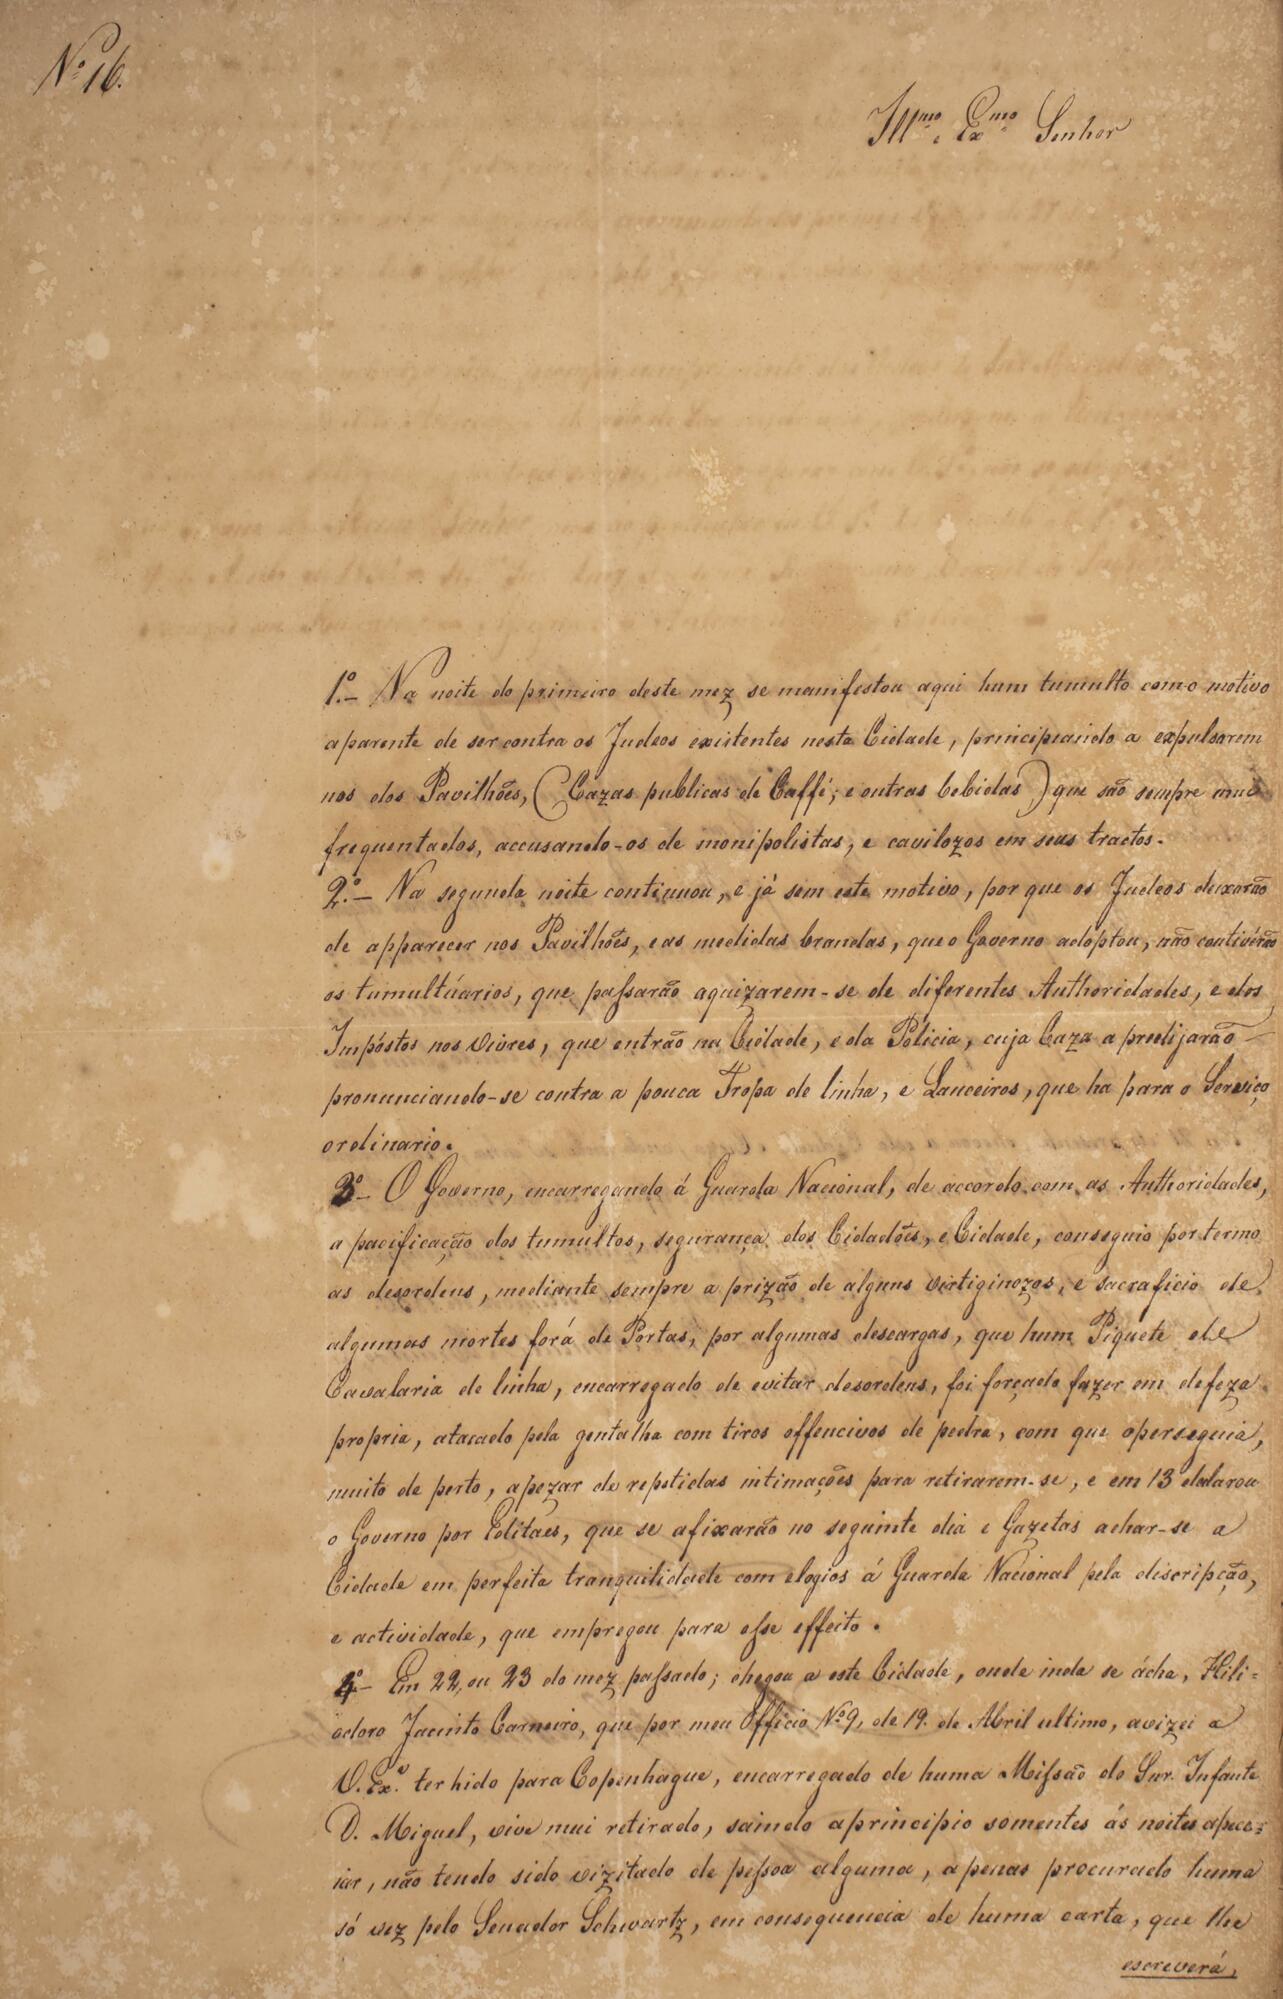 Nº 16.
Illmo e Exmo Senhor
1º - Na noite do primeiro deste mez se manifestou aqui hum tumulto com o motivo
aparente de ser contra os Judeos existentes nesta Cidade, principiando a expulsarem
nos dos Pavilhões, (Cazas publicas de Caffé; e outras bebidas) que são sempre mui
frequentados, accusando-os de monipolistas, e cavilozos em seus tractos.
2º - Na segunda noite continuou, e já sem este motivo, por que os Judeos deixarão
de apparecer nos Pavilhões, e as medidas brandas, que o Governo adóptou, não contivérão
os tumultúarios, que passarão aquizarem-se de diferentes Authoridades, e dos
Impóstos nos viveres, que entrão na Cidade, e da Policia, cuja Caza apredijarão
pronunciando-se contra a pouca Tropa de linha, e Lanceiros, que ha para o Serviço
ordinario.
3º - O Governo, encarregando á Guarda Nacional, de accordo com as Authoridades,
a pacificação dos tumultos, segurança dos Cidadões, e Cidade, conseguio por termo
as desordens, mediante sempre a prizão de alguns vertiginozos, e sacraficio de
algumas mortes forá de Portas, por algumas descargas, que hum Piquete de
Cavalaria de linha, encarregado de evitar desordens, foi forçado fazer em defeza
propria, atacado pela gentalha com tiros offencivos de pedra, com que o perseguia,
muito de perto, apezar de repetidas intimações para retirarem-se, e em 13 dalarou
o Governo por Editaes, que se afixarão no seguinte dia e Gazetas achar-se a
Cidade em perfeita tranquilidade com elogios á Guarda Nacional pela discripção,
e actividade, que empregou para esse effeito.
4º - Em 22, ou 23 do mez passado; chegou a este Cidade, onde inda se ácha, Hili=
odoro Jacinto Carneiro, que por meu Officio Nº 9, de 19. de Abril ultimo, avizei a
V. Exª. ter hido para Copenhague, encarregado de huma Missão do Snr. Infante
D. Miguel, vive mui retirado, saindo aprincipio somentes ás noites apace=
iar, não tendo sido vizitado de pessoa alguma, apenas procurado huma
só vez pelo Senador Schwartz, em consequencia de huma carta, que lhe
escreverá,